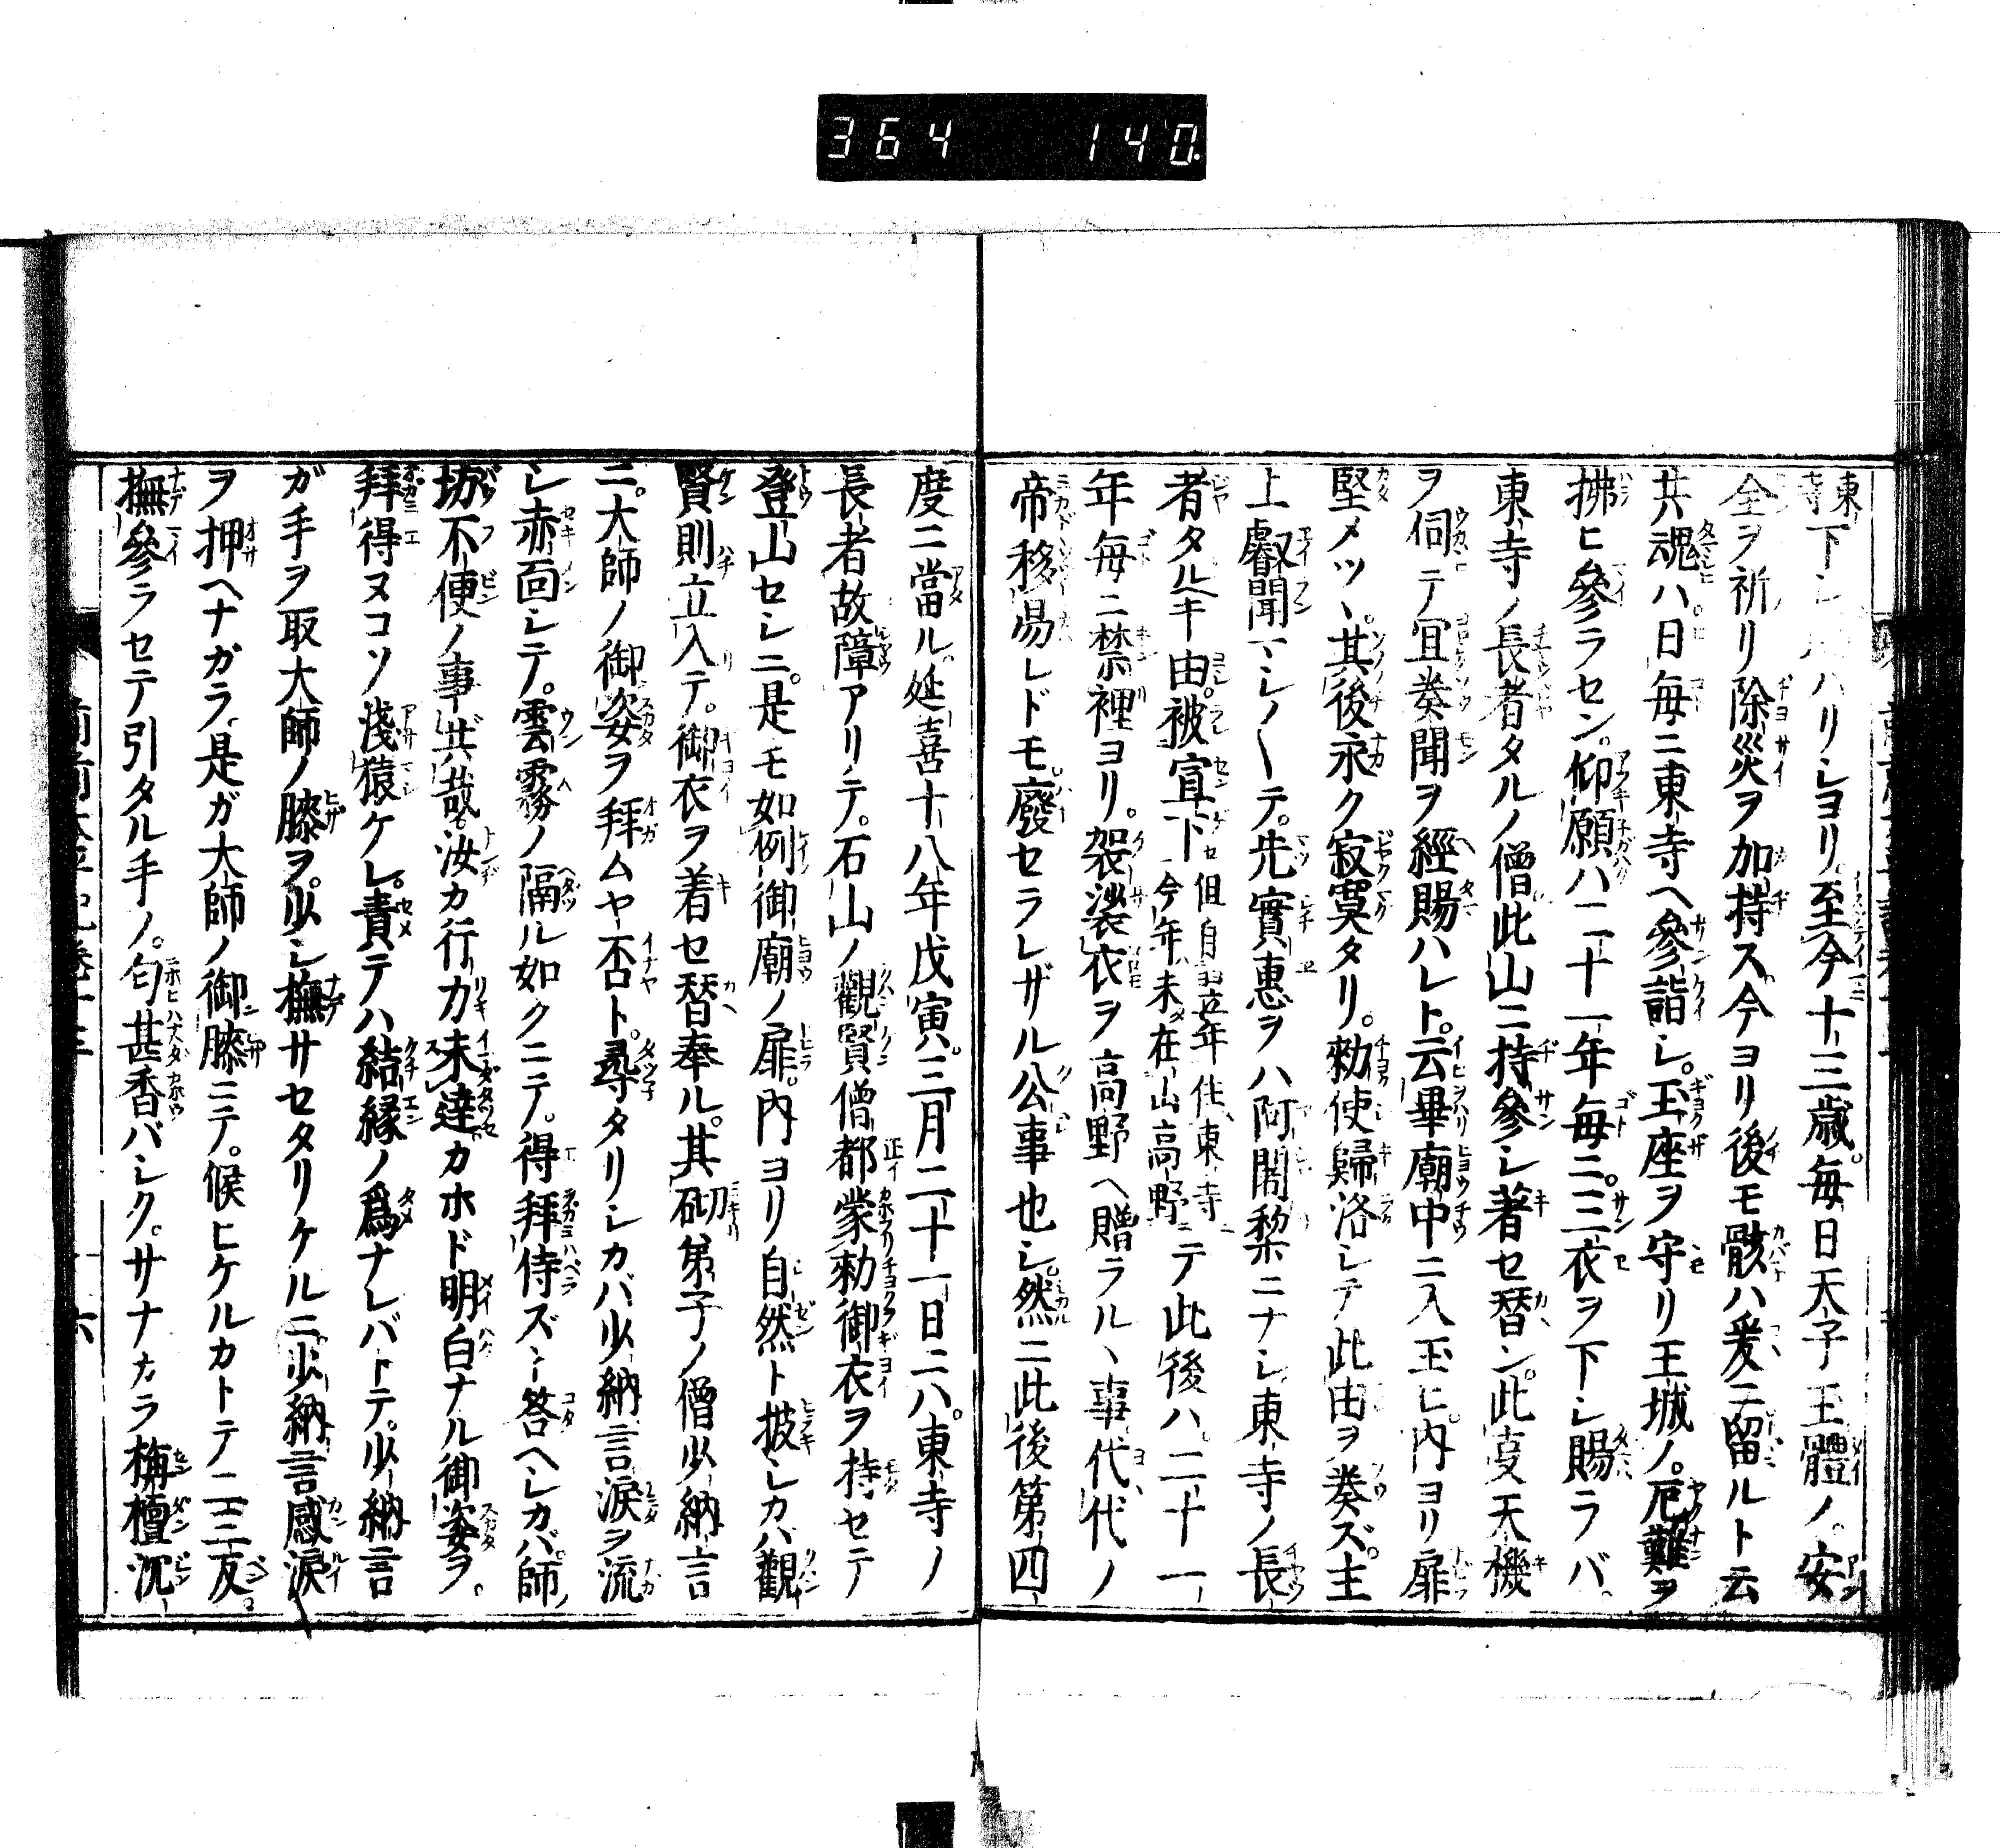 364 140.
下シ ハリシヨリ至今十三歳。毎日天子玉體ノ。安
全ヲ祈リ除災ヲ加持ス今ヨリ後モ骸ハ爰ニ留ルト云
共魂ハ。日毎ニ東寺ヘ參詣シ。玉座ヲ守リ王城ノ。厄難ヲ
拂ヒ參ラセン。仰願ハ二十一年毎ニ。三衣ヲ下シ賜ラバ。
東寺ノ長者タルノ僧此山ニ持參シ著セ替ン。此度天機
ヲ伺テ宜奏聞ヲ經賜ハレト。云畢廟中ニ入玉ヒ。内ヨリ扉
堅メツヽ。其後永ク寂寞タリ。勅使歸洛シテ此由ヲ奏ズ。主
上叡聞マシ〳〵テ。先實惠ヲハ阿闍梨ニナシ東寺ノ長
者タルベキ由。被宣下セ 但自翌年住東寺ニ今年ハ未タ在山高野ニテ此後ハ。二十一
年毎ニ禁裡ヨリ。袈裟衣ヲ高野ヘ贈ラルヽ事代代ノ
帝移易レドモ。廢セラレザル公事也シ。然ニ此後第四
度ニ當ル。延喜十八年戊寅。三月二十一日ニハ。東寺ノ
長者故障アリテ。石山ノ觀賢僧都蒙勅御衣ヲ持セテ
登山セシニ。是モ如例御廟ノ扉。内ヨリ自然ト披シカバ觀
賢則立入テ。御衣ヲ着セ替奉ル。其砌弟子ノ僧少納言
ニ。大師ノ御姿ヲ拜ムヤ否ト。尋タリシカバ少納言涙ヲ流
シ赤面シテ。雲霧ノ隔ル如クニテ。得拜侍ズト答ヘシカバ。師ノ
坊不便ノ事共哉。汝カ行力未達カホド明白ナル御姿ヲ。
拜得ヌコソ淺猿ケレ。責テハ結縁ノ爲ナレバトテ。少納言
ガ手ヲ取大師ノ膝ヲ。少シ撫サセタリケルニ少納言感涙
ヲ押ヘナガラ。是ガ大師ノ御膝ニテ。候ヒケルカトテ二三反。
撫參ラセテ引タル手ノ。匂甚香バシク。サナカラ栴檀沈
六